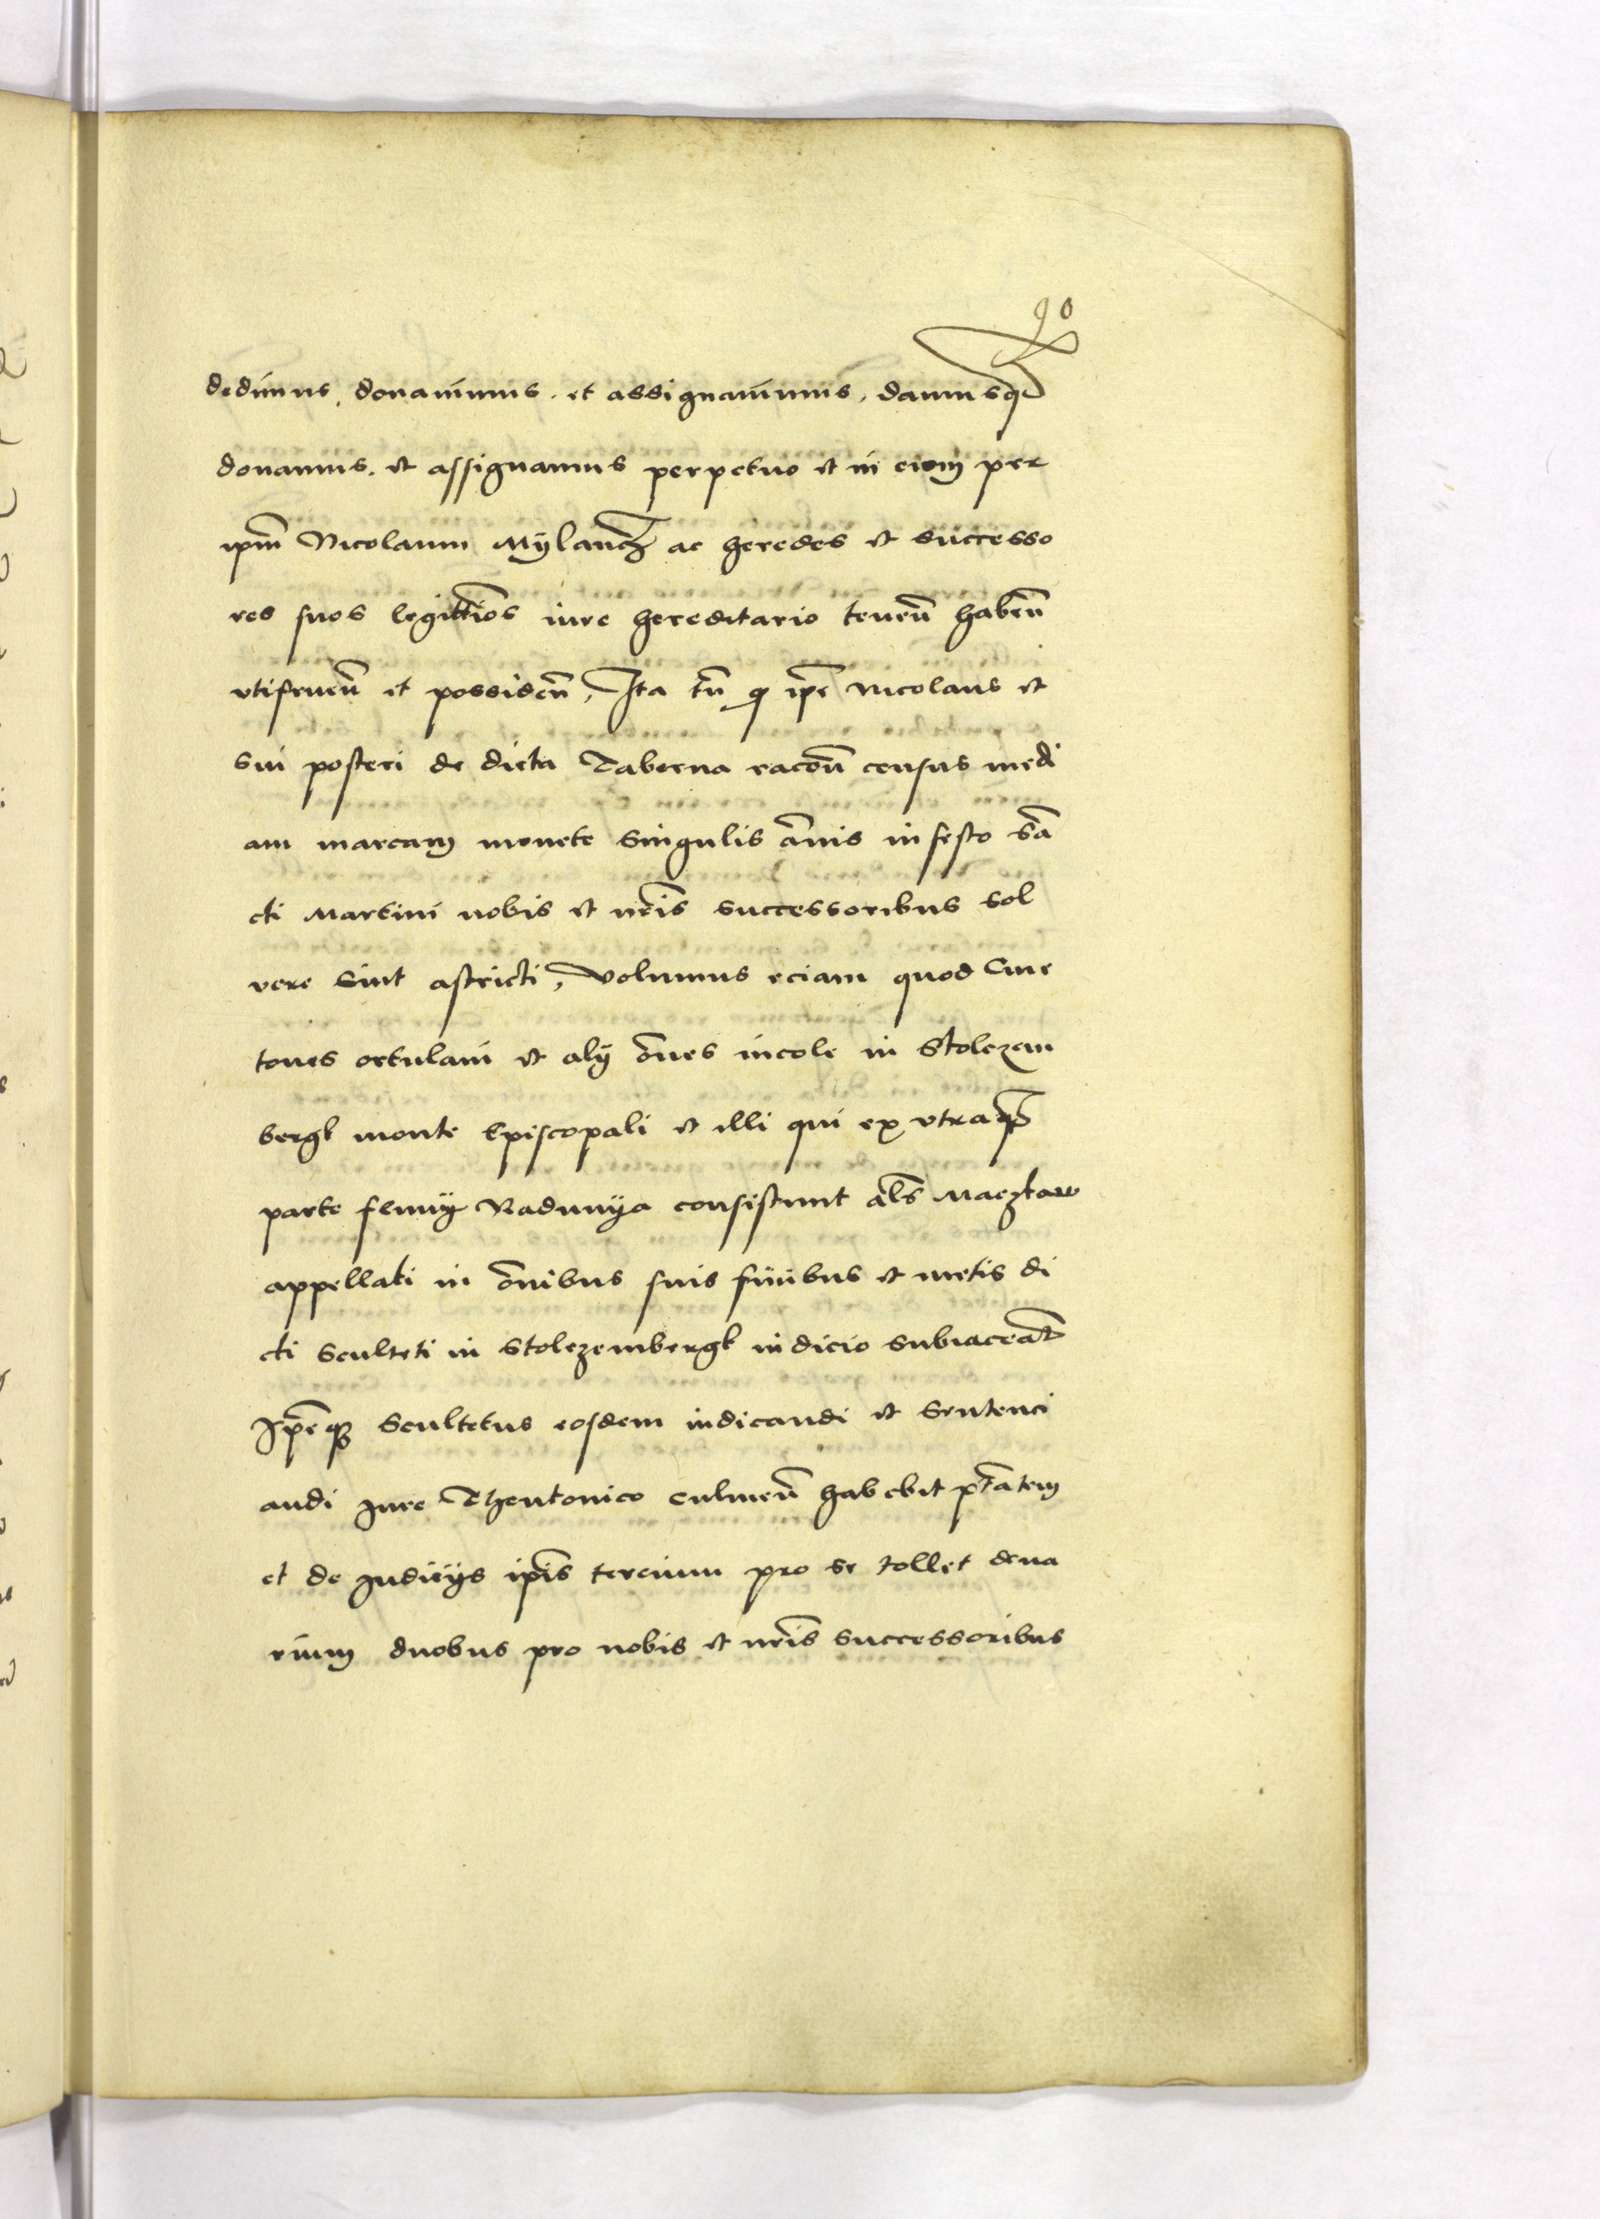 90
dedimus. donauimus. et assignauimus. damusq̃
donamus. et assignamus perpetuo et in euum per
ip̃m Nicolaum Mÿlancz̃ ac heredes et successo
res suos legittĩos iure hereditario tenen̄ haben̄
vtifruen̄ et possiden̄, Ita tn̄ ꝙ ip̃e Nicolaus et
sui posteri de dicta Taberna racōn̄ census medi
am marcam monete singulis ānis in festo sā
cti Martini nobis et nr̃is successoribus sol
vere sint astricti, Volumus eciam quod Cme
tones ortulani et alÿ ōnes incole in Stolczem
bergk monte Episcopali et illi qui ex vtraq̃
parte fluuÿ Radunÿa consistunt al̃s
appellati in ōnibus suis finibus et metis di
cti Sculteti in Stolczembergk iudicio subiaceāt
Ip̃eqꝫ Scultetus eosdem iudicandi et Sentenci
andi Jure Theutonico culmen̄ habebit ptātem
et de Judicÿs ip̃is tercium pro se tollet dena
rium duobus pro nobis et nr̃is successoribus